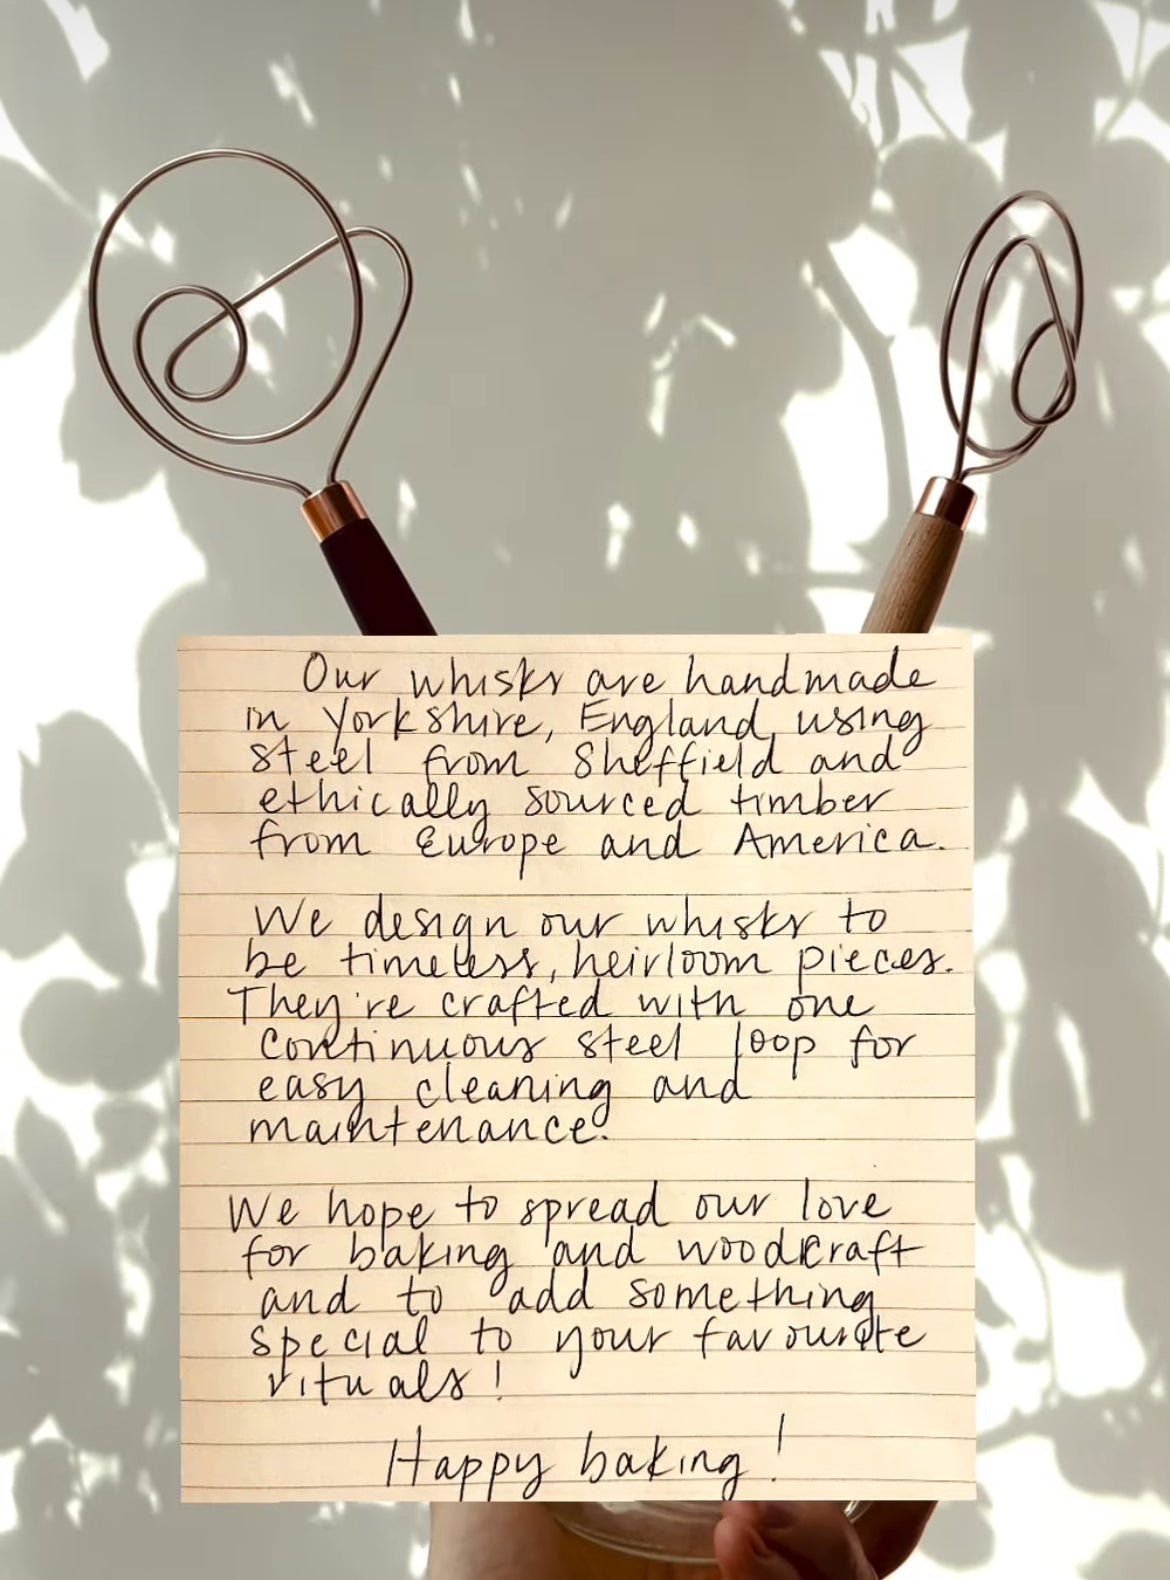 Our whisks are handmade
in Yorkshire, England, using
steel from Sheffield and
ethically sourced timber
from Europe and America.
We design our whisks to
be timeless, heirloom pieces.
They're crafted with one
continuous steel loop for
easy cleaning and
maintenance.
We hope to spread our love
for baking and woodcraft
and to add something
special to your favourite
rituals!
Happy baking!